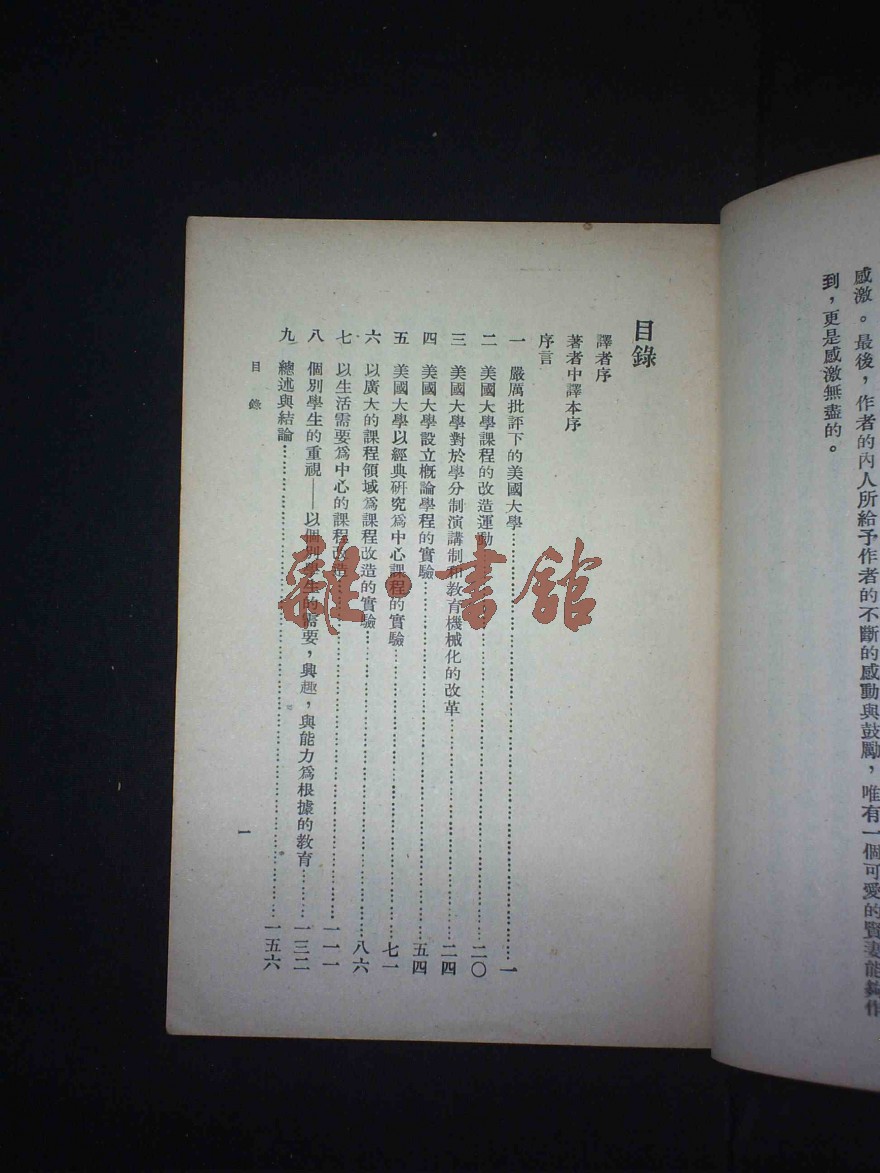 感激。最後，作者的內人所給予作者的不斷的感動與鼓勵，唯有一個可愛的賢妻能夠作
到，更是感激無盡的。
目錄
譯者序
著者中譯本序
序言
一 嚴厲批評下的美國大學……一
二 美國大學課程的改造運動……二〇
三 美國大學對於學分制演講制和教育機械化的改革……二四
四 美國大學設立概論學程的實驗……五四
五 美國大學以經典研究爲中心課程的實驗……七一
六 以廣大的課程領域爲課程改造的實驗……八六
七 以生活需要爲中心的課程改造……一一一
八 個別學生的重視——以個別學生的需要，興趣，與能力爲根據的教育……一三二
九 總述與結論……一五六
目錄
一
雜·書館